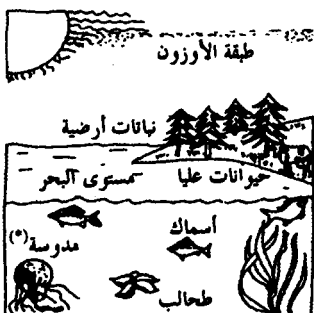 طبقة الأوزون
نباتات أرضية
حيوانات عليا
مستوى البحر
أسماك
مدوسة(*)
طحالب